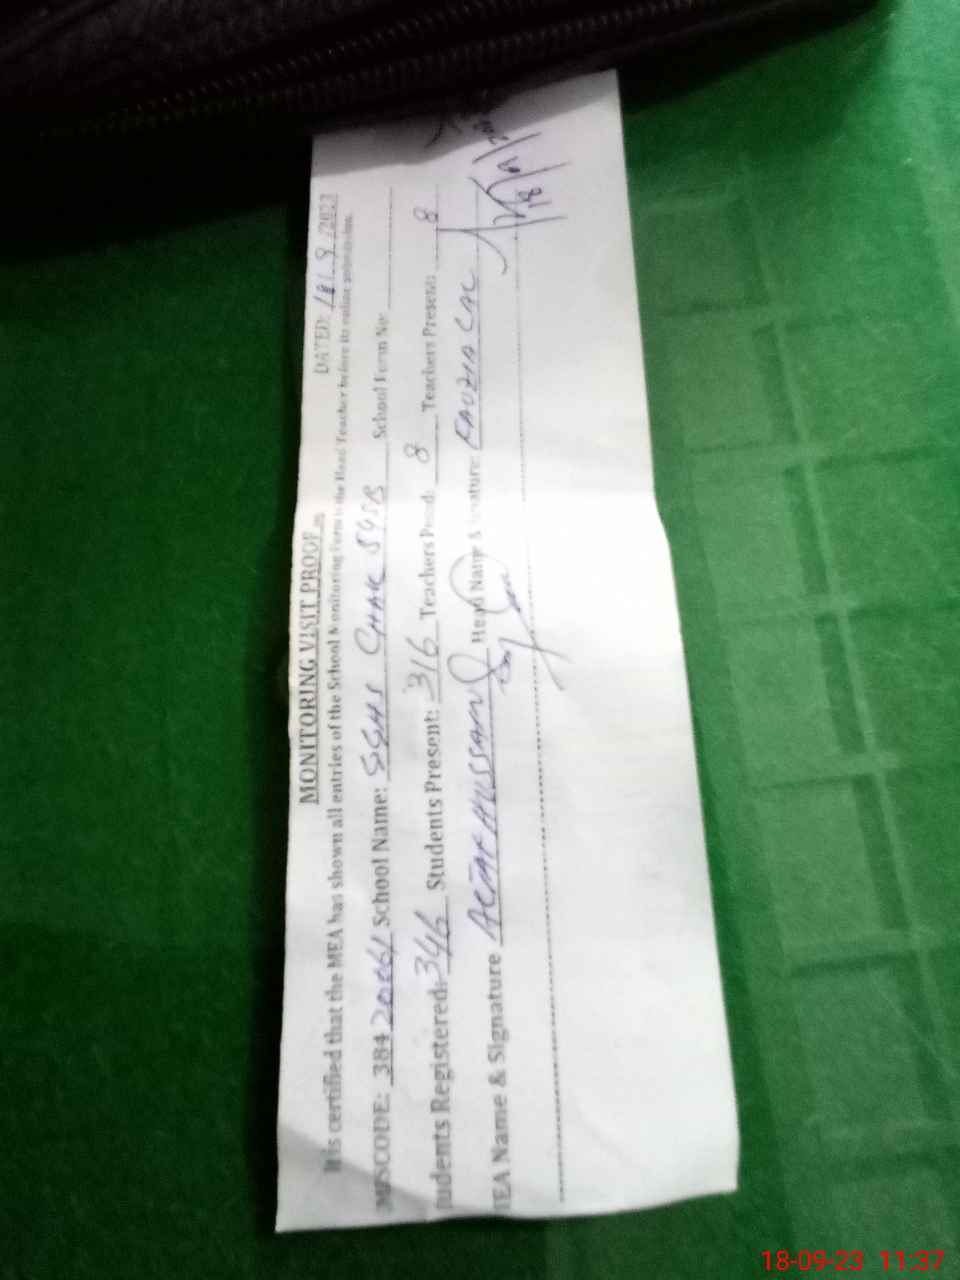 MONITORING VISIT PROOF
DATED: 18/9/2023
It is certified that the MEA has shown all entries of the School Monitoring Form to the Head Teacher before its online submission.
MISCODE: 38420061 School Name: GGHS CHAK 54SB School Form No:
Students Registered: 346 Students Present: 316 Teachers Posted: 8 Teachers Present: 8
MEA Name & Signature ALTAF HUSSAIN Head Name & Signature
18/9/
18-09-23 11:37